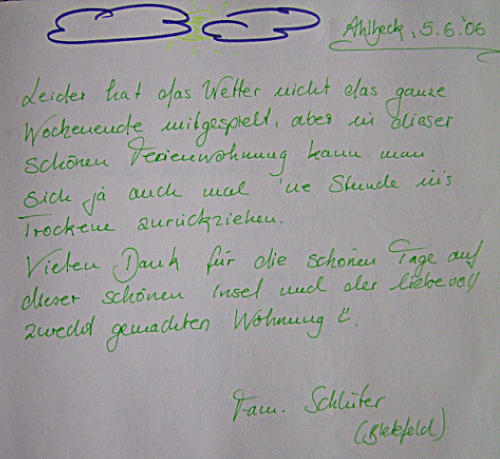 Ahlbeck, 5.6.'06
Leider hat das Wetter nicht das ganze
Wochenende mitgespielt, aber in dieser
schönen Ferienwohnung kann man
sich ja auch mal 'ne Stunde ins
Trockene zurückziehen.
Vielen Dank für die schönen Tage auf
dieser schönen Insel und der liebevoll
zurecht gemachten Wohnung
Fam. Schlüter
(Bielefeld)